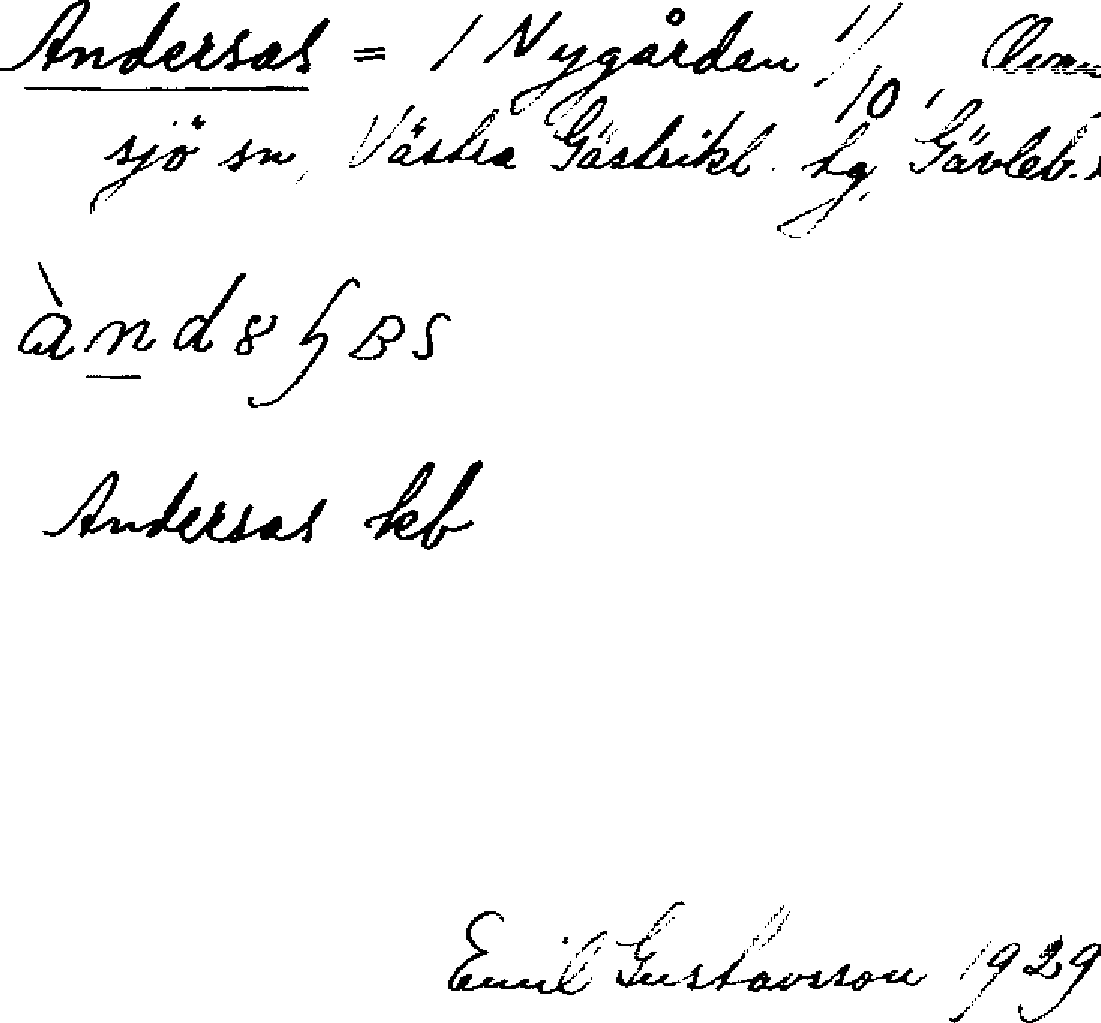 Andersas = 1 Nygården 1/10, Ovan
sjö sn, Västra Gästrikl. tg, Gävleb.
Andersas kb
Emil Gustavsson 1929